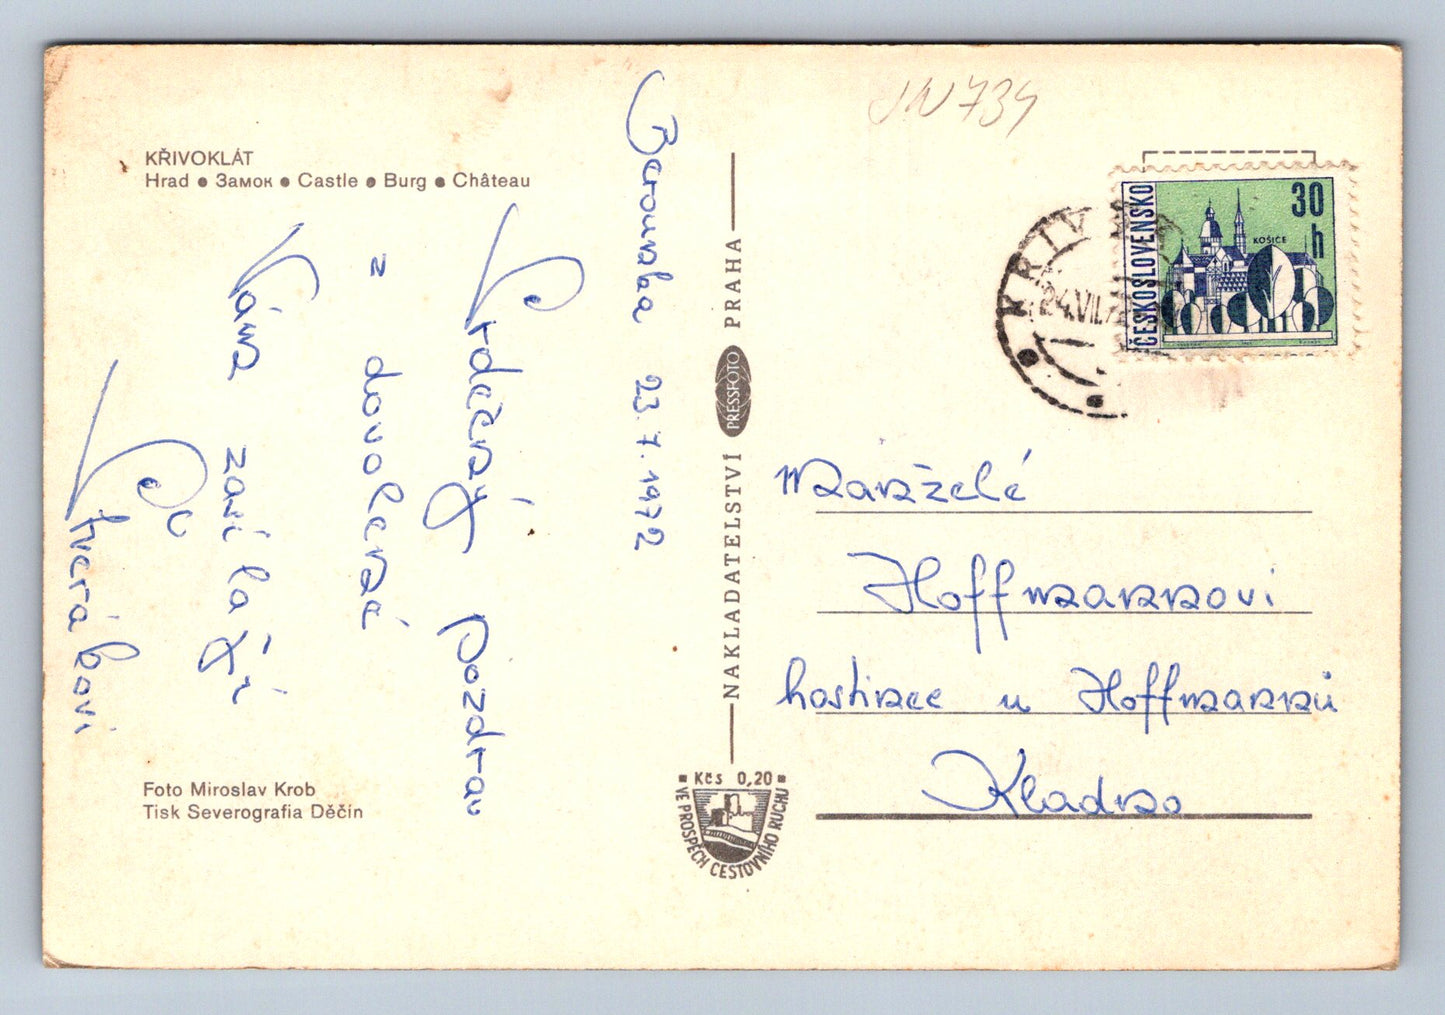 KŘIVOKLÁT
Hrad ● Замок ● Castle ● Burg ● Château
Berounka 23.7.1972
Srdečný pozdrav
z dovolené
Vám zasílají
Škverábovi
Foto Miroslav Krob
Tisk Severografia Děčín
NAKLADATELSTVÍ PRESSFOTO PRAHA
Kčs 0,20
VE PROSPĚCH CESTOVNÍHO RUCHU
ČESKOSLOVENSKO
30 h
KOŠICE
KŘIV
24.VII.7
Manželé
Hoffmannovi
hostinec u Hoffmannů
Kladno